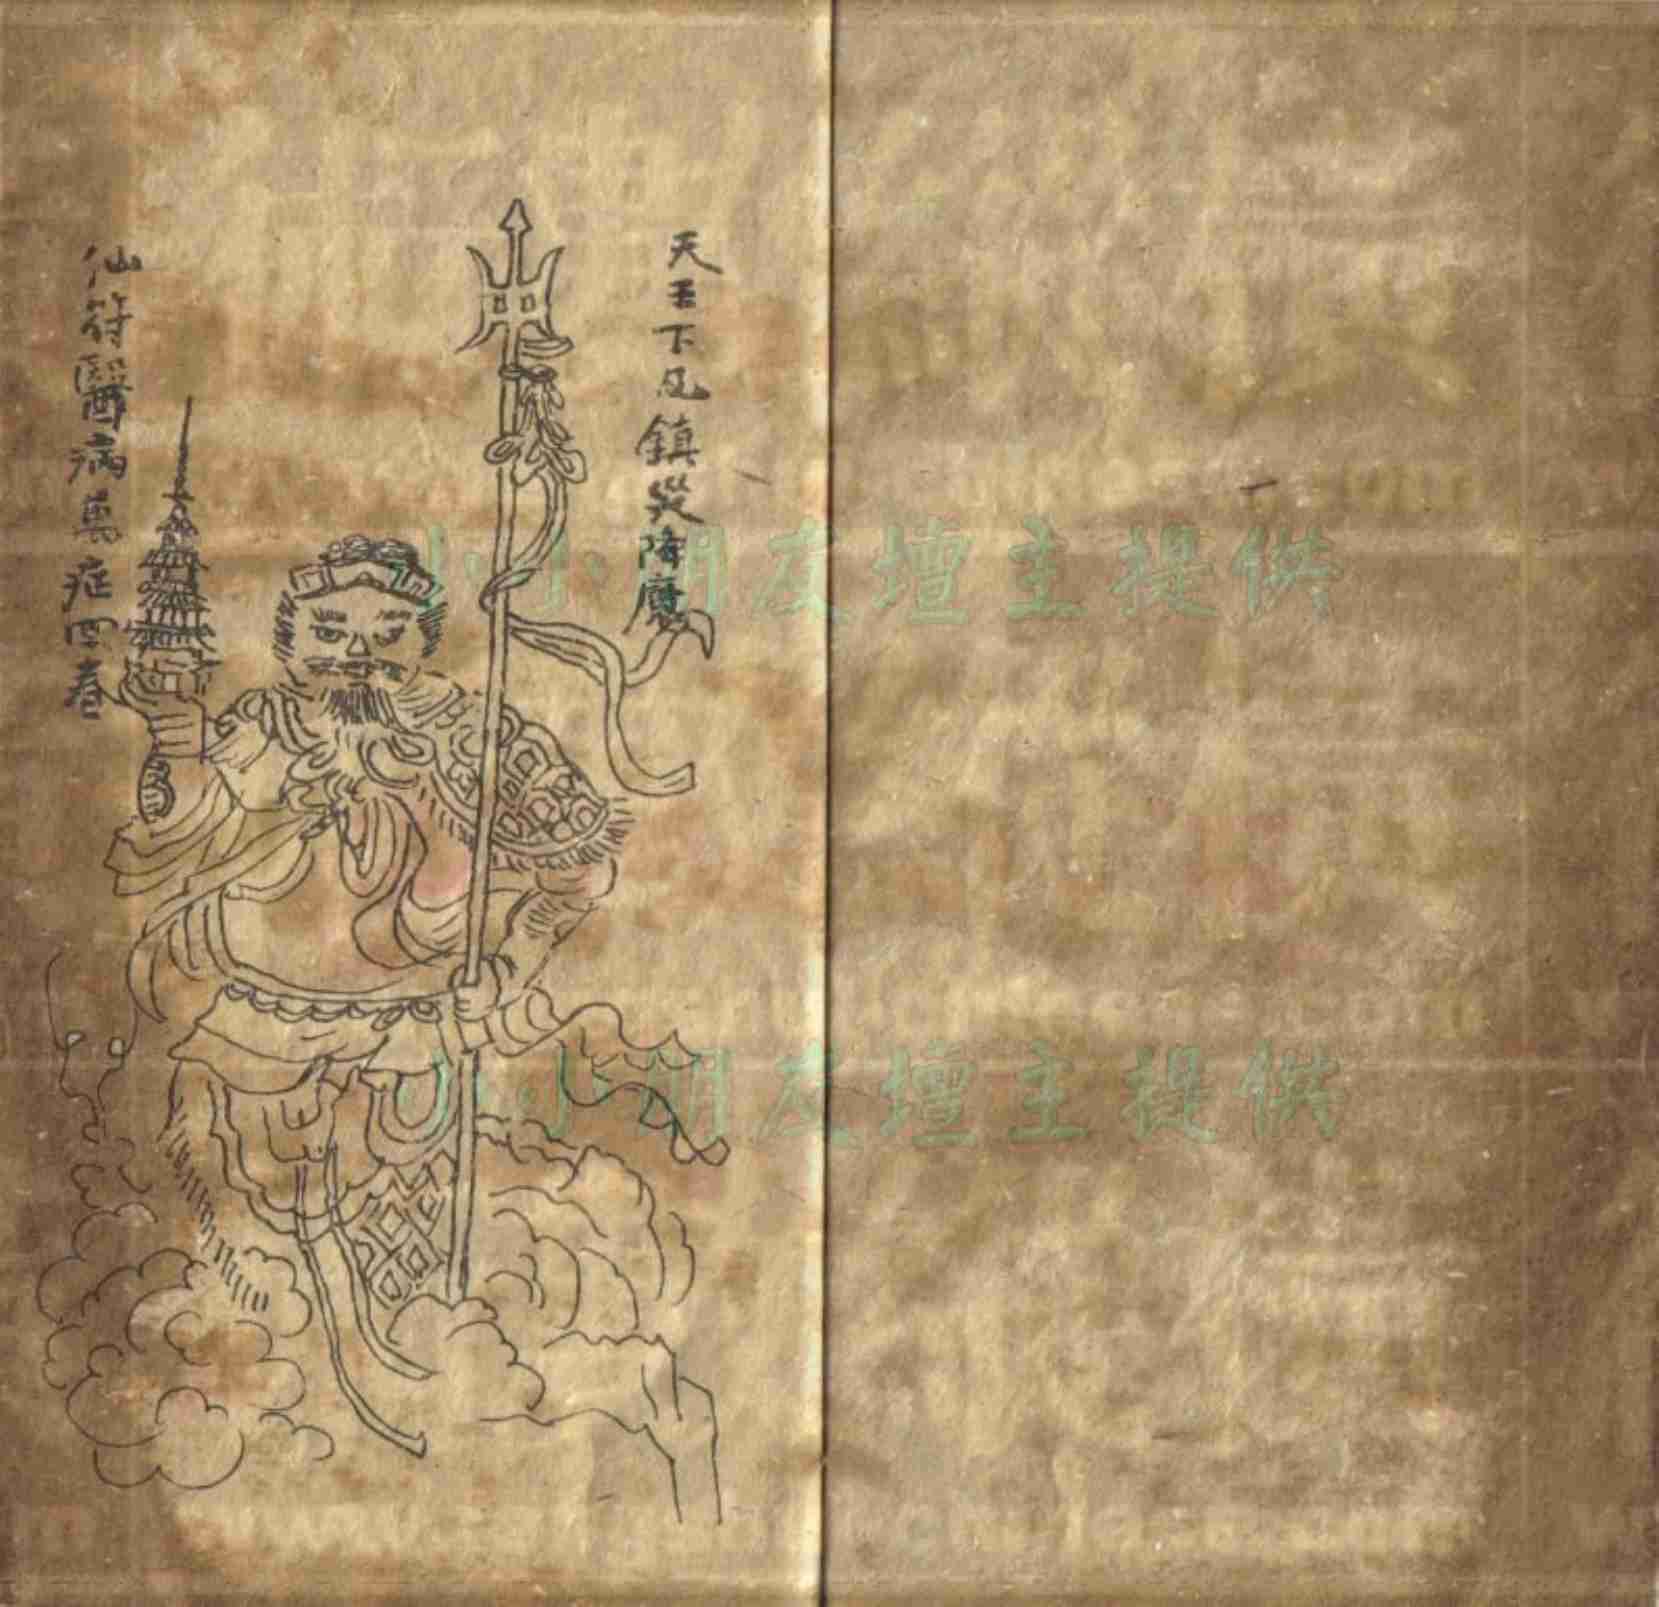 天王下凡鎮災降魔
仙符醫病萬症回春
小小朋友壇主提供
小小朋友壇主提供